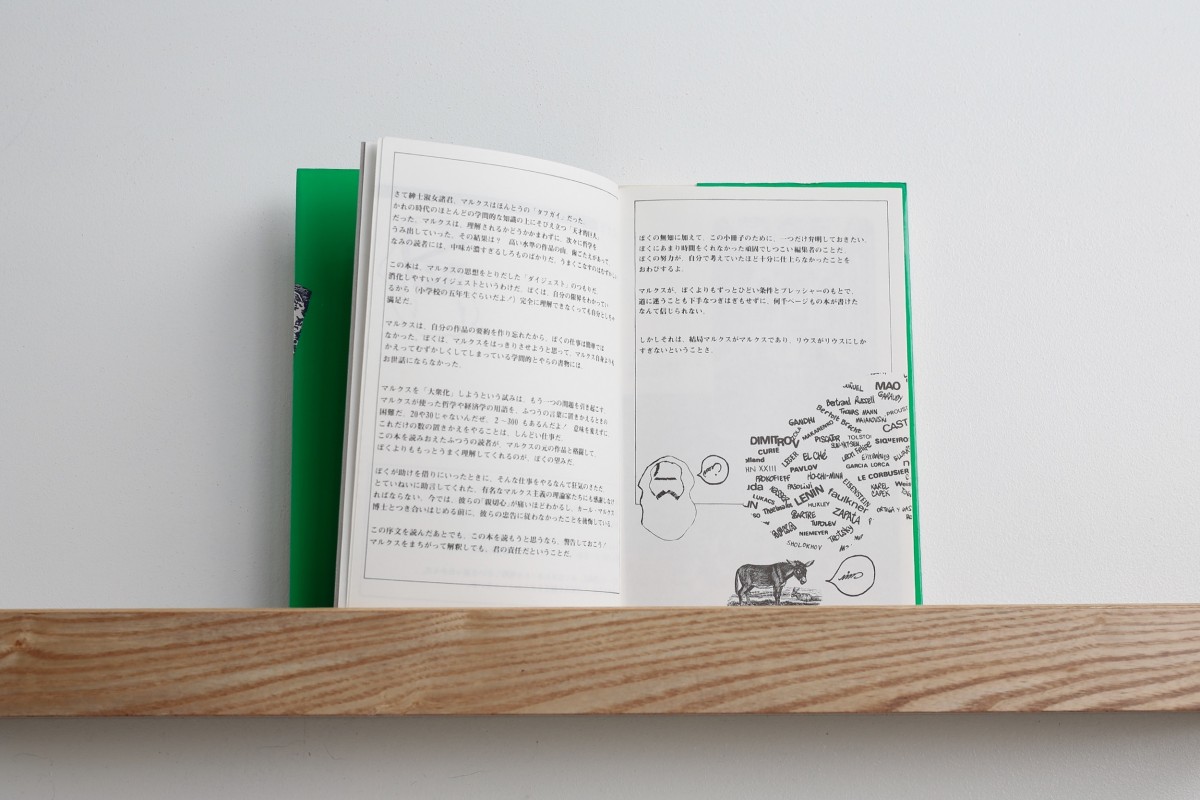 さて紳士淑女諸君、マルクスはほんとうの「タフガイ」だった。
かれの時代のほとんどの学問的な知識の上にそびえ立つ「天才的巨人」
だった。マルクスは、理解されるかどうかかまわずに、次々に哲学を
うみ出していった。その結果は? 高い水準の作品の山、歯ごたえがあって、
なみの読者には、中味が濃すぎるしろものばかりだ。うまくこなすのはむずかしい
この本は、マルクスの思想をとりだした「ダイジェスト」のつもりだ。
消化しやすいダイジェストというわけだ。ぼくは、自分の限界をわかってい
るから(小学校の五年生ぐらいだよ!)完全に理解できなくっても自分としちゃ
満足だ。
マルクスは、自分の作品の要約を作り忘れたから、ぼくの仕事は簡単では
なかった。ぼくは、マルクスをはっきりさせようと思って、マルクス自身よりも
かえってむずかしくしてしまっている学問的とやらの書物には
お世話にならなかった。
マルクスを「大衆化」しようという試みは、もう一つの問題を引き起こす。
マルクスが使った哲学や経済学の用語を、ふつうの言葉に置きかえるときの
困難だ。20や30じゃないんだぜ。2~300もあるんだよ! 意味を変えずに、
これだけの数の置きかえをやることは、しんどい仕事だ。
この本を読みおえたふつうの読者が、マルクスの元の作品と格闘して、
ぼくよりももっとうまく理解してくれるのが、ぼくの望みだ。
ぼくが助けを借りにいったときに、そんな仕事をやるなんて狂気のさただ、
とていねいに助言してくれた、有名なマルクス主義の理論家たちにも感謝しなけ
ればならない。今では、彼らの「親切心」が痛いほどわかるし、カール・マルクス
博士とつき合いはじめる前に、彼らの忠告に従わなかったことを後悔している。
この序文を読んだあとでも、この本を読もうと思うなら、警告しておこう!
マルクスをまちがって解釈しても、君の責任だということだ。
ぼくの無知に加えて、この小冊子のために、一つだけ弁明しておきたい。
ぼくにあまり時間をくれなかった頑固でしつこい編集者のことだ。
ぼくの努力が、自分で考えていたほど十分に仕上らなかったことを
おわびするよ。
マルクスが、ぼくよりもずっとひどい条件とプレッシャーのもとで、
道に迷うことも下手なつぎはぎもせずに、何千ページもの本が書けた
なんて信じられない。
しかしそれは、結局マルクスがマルクスであり、リウスがリウスにしか
すぎないということさ。
MAO
Bertrand Russell
THOMAS MANN
PROUST
Bertolt Brecht
MAIAKOVSKI
GANDHI
ZOLA
MAKARENKO
CAST
DIMITROV
PISCATOR
TOLSTOI
SUN-YAT-SEN
SIQUEIRO
CURIE
LEGER
EL CHÉ
LEON FELIPE
olland
HN XXIII
PAVLOV
GARCIA LORCA
PROKOFIEFF
HO-CHI-MINH
LE CORBUSIER
uda
NASSER
PASOLINI
EISENSTEIN
KAREL
CAPEK
LUKACS
LENIN
faulkner
HUXLEY
ORTEGA Y
SARTRE
ZAPATA
TUPOLEV
NIEMEYER
TROTSKY
SHOLOKHOV